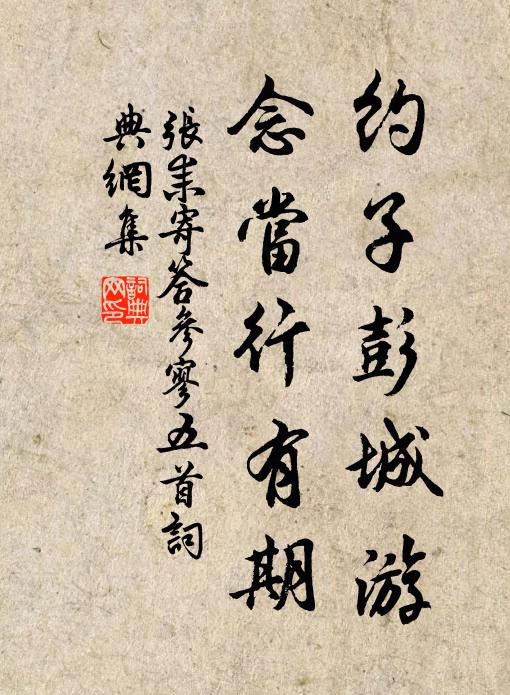 約子彭城游
念當行有期
張耒寄答參寥五首詞
典網集
詞典
网印